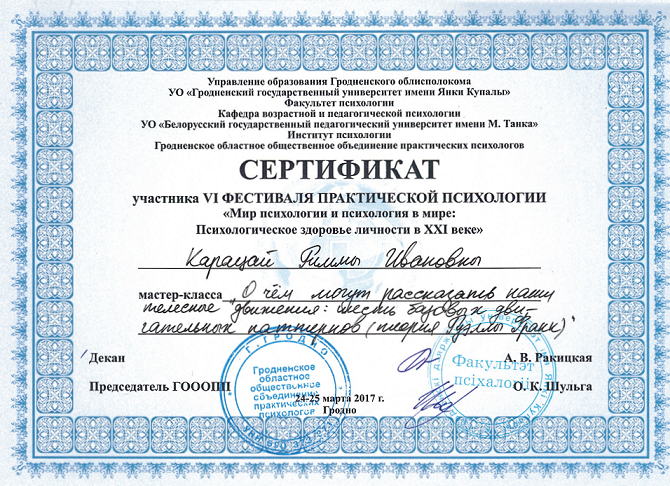 Управление образования Гродненского облисполкома
УО «Гродненский государственный университет имени Янки Купалы»
Факультет психологии
Кафедра возрастной и педагогической психологии
УО «Белорусский государственный педагогический университет имени М. Танка»
Институт психологии
Гродненское областное общественное объединение практических психологов
СЕРТИФИКАТ
участника VI ФЕСТИВАЛЯ ПРАКТИЧЕСКОЙ ПСИХОЛОГИИ
«Мир психологии и психология в мире:
Психологическое здоровье личности в XXI веке»
Карацай Риммы Ивановны
мастер-класса „О чём могут рассказать наши
телесные движения: шесть базовых дви-
гательных паттернов (теория Рузллы Франк)"
Декан
А. В. Ракицкая
Председатель ГОООПП
О. К. Шульга
24-25 марта 2017 г.
Гродно
г. ГРОДНО
Гродненское
областное
общественное
объединение
практических
психологов
Факультэт
псіхалогіі